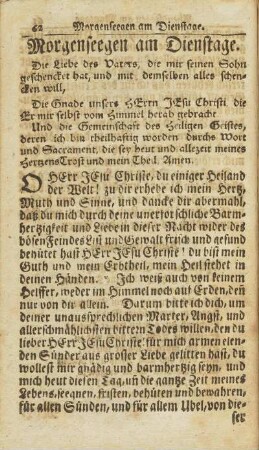 62 Morgenseegen am Dienstage.
Morgenseegen am Dienstage.
Die Liebe des Vaters, die mir seinen Sohn
geschencket hat, und mit demselben alles schen-
cken will,
Die Gnade unsers HErrn JEsu Christi die
Er mir selbst vom Himmel herab gebracht
Und die Gemeinschaft des Heiligen Geistes,
deren ich bin theilhaftig worden durchs Wort
und Sacrament, die sey heut und allezeit meines
Hertzens Trost und mein Theil. Amen.
O HErr JEsu Christe, du einiger Heiland
der Welt! zu dir erhebe ich mein Hertz,
Muth und Sinne, und dancke dir abermahl,
daß du mich durch deine unerforschliche Barm-
hertzigkeit und Liebe in dieser Nacht wider des
bösen Feindes List und Gewalt frisch und gesund
behütet hast HErr JEsu Christe! du bist mein
Guth und mein Erbtheil, mein Heil stehet in
deinen Händen. Ich weiß auch von keinem
Helffer, weder im Himmel noch auf Erden, denn
nur von dir allein. Darum bitte ich dich, um
deiner unaussprechlichen Marter, Angst, und
allerschmählichsten bittern Todes willen, den du
lieber HErr JEsu Christe! für mich armen elen-
den Sünder aus grosser Liebe gelitten hast, du
wollest mir gnädig und barmhertzig seyn, und
mich heut diesen Tag, uñ die gantze Zeit meines
Lebens, seegnen, fristen, behüten und bewahren,
für allen Sünden, und für allem Ubel, von die-
ser